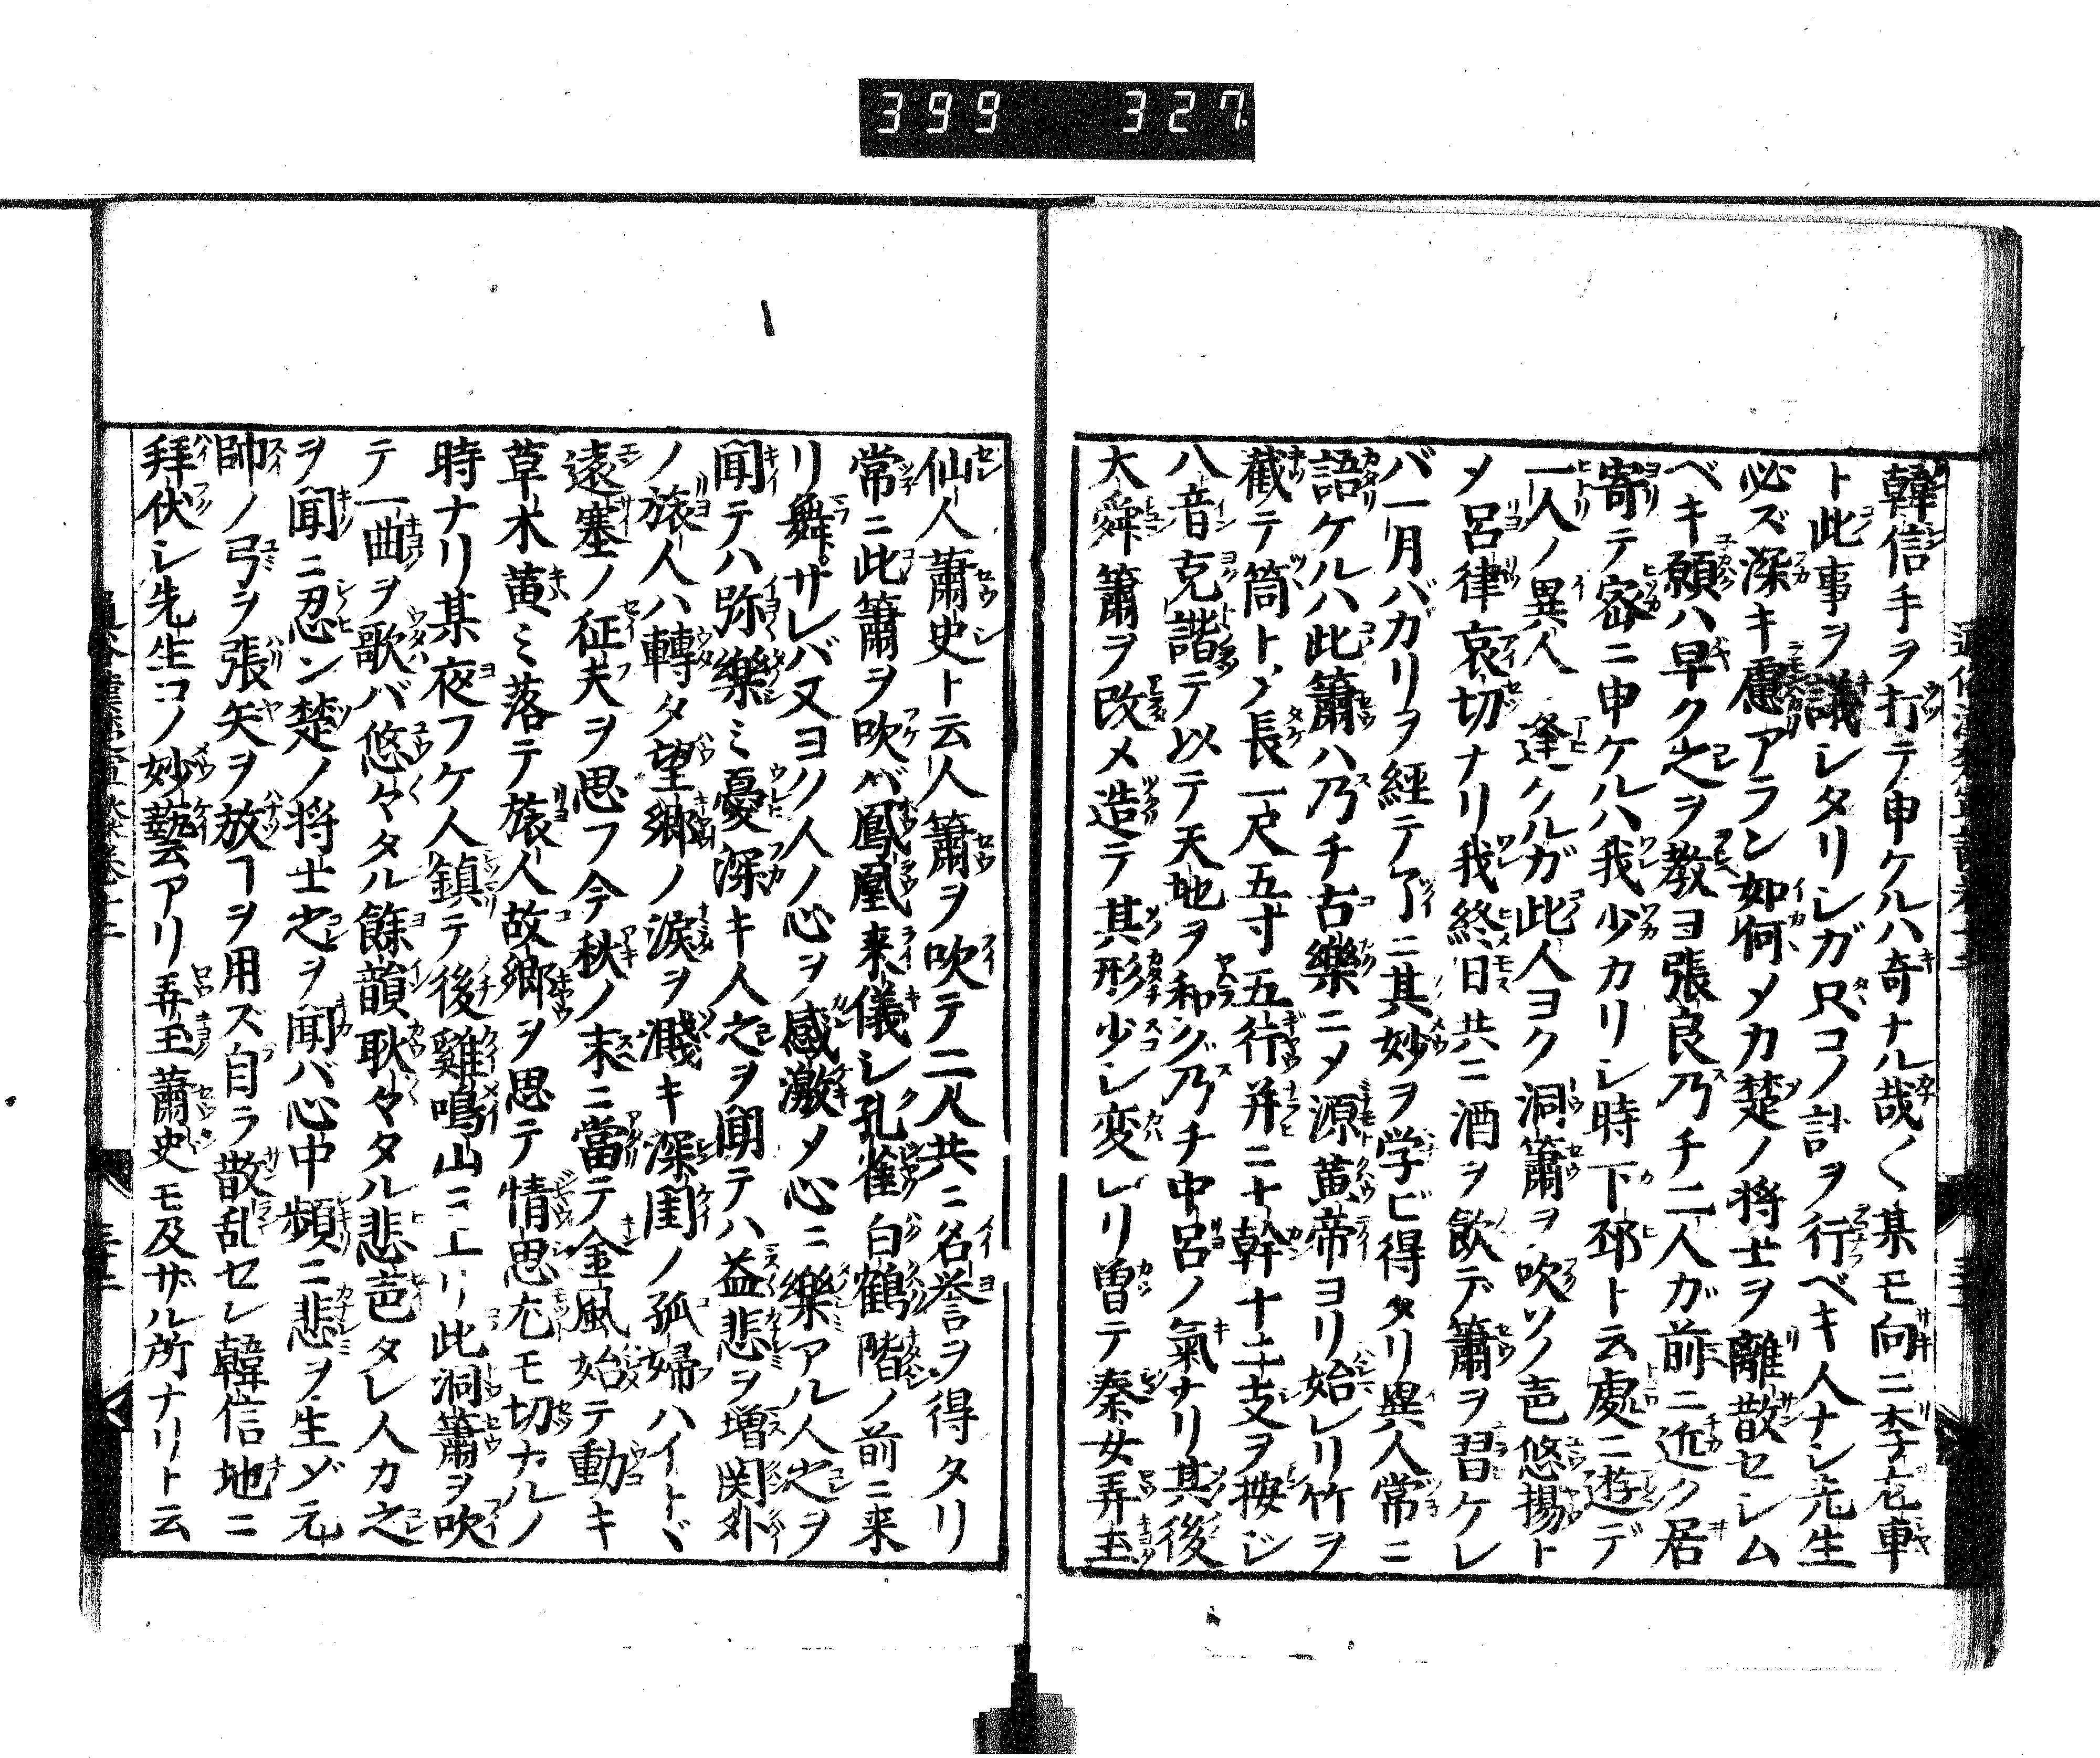 399 327
韓信手ヲ打テ申ケルハ奇ナル哉〱某モ向ニ李左車
ト此事ヲ議シタリシガ只コノ計ヲ行ベキ人ナシ先生
必ズ深キ慮アラン如何メカ楚ノ将士ヲ離散セシム
ベキ願ハ早ク之ヲ教ヨ張良乃チ二人ガ前ニ近ク居
寄テ密ニ申ケルハ我少カリシ時下邳ト云處ニ遊デ
一人ノ異人ニ逢ケルガ此人ヨク洞簫ヲ吹ソノ声悠揚ト
メ呂律哀切ナリ我終日共ニ酒ヲ飲デ簫ヲ習ケレ
バ一月バガリヲ經テ了ニ其妙ヲ学ビ得タリ異人常ニ
語ケルハ此簫ハ乃チ古樂ニメ源黄帝ヨリ始レリ竹ヲ
截テ筒トメ長一尺五寸五行并ニ十幹十二支ヲ按ジ
八音克諧テ以テ天地ヲ和グ乃チ中呂ノ氣ナリ其後
大舜簫ヲ改メ造テ其形少シ変レリ曽テ秦女弄玉
仙人蕭史ト云人簫ヲ吹テ二人共ニ名誉ヲ得タリ
常ニ此簫ヲ吹バ鳳凰来儀シ孔雀白鶴階ノ前ニ来
リ舞サレバ又ヨノ人ノ心ヲ感激メ心ニ樂アル人之ヲ
聞テハ弥樂ミ憂深キ人之ヲ聞テハ益悲ヲ増関外
ノ旅人ハ轉タ望郷ノ涙ヲ濺キ深閨ノ孤婦ハイトヾ
遠塞ノ征夫ヲ思フ今秋ノ末ニ當テ金風始テ動キ
草木黄ミ落テ旅人故郷ヲ思テ情思尤モ切ナルノ
時ナリ某夜フケ人鎮テ後雞鳴山ニ上リ此洞簫ヲ吹
テ一曲ヲ歌バ悠々タル餘韻耿々タル悲声タレ人カ之
ヲ聞ニ忍ン楚ノ将士之ヲ聞バ心中頻ニ悲ヲ生ゾ元
帥ノ弓ヲ張矢ヲ放ヿヲ用ズ自ラ散乱セレ韓信地ニ
拜伏レ先生コノ妙藝アリ弄玉蕭史モ及ザル所ナリト云